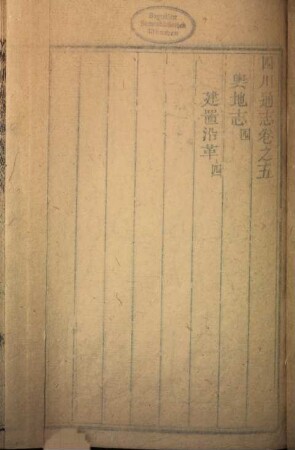 四川通志卷之五
輿地志四
建置沿革四